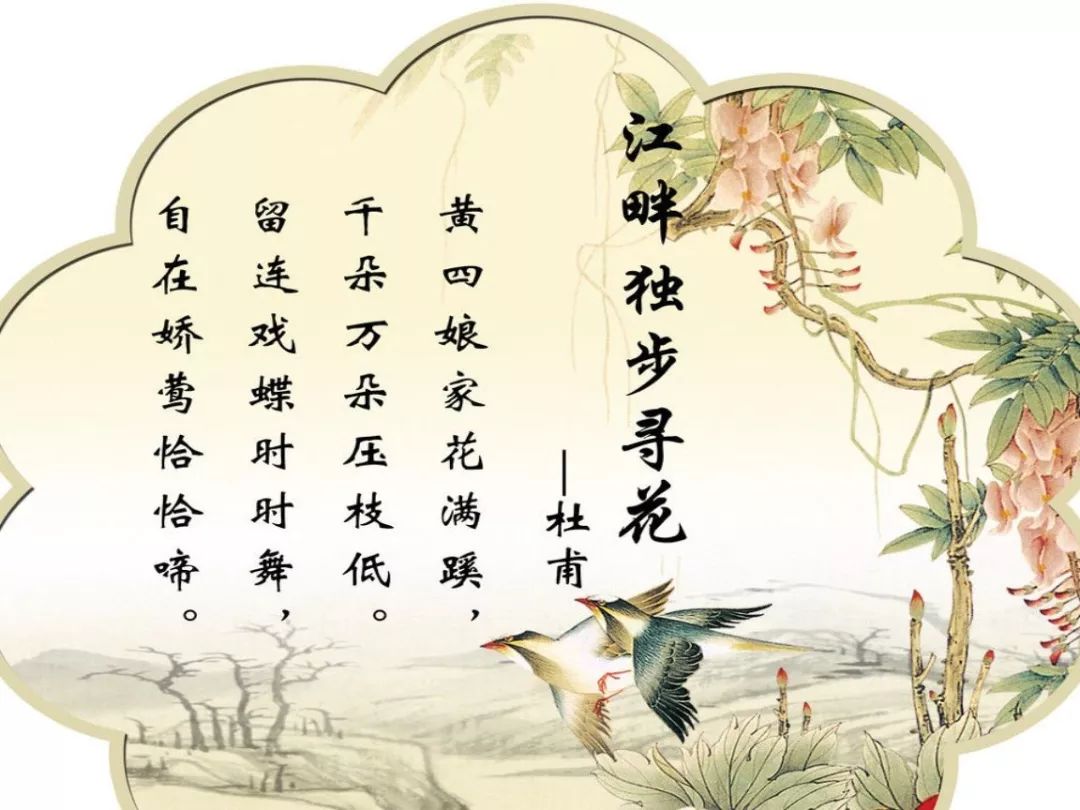 江畔独步寻花
—杜甫
黄四娘家花满蹊，
千朵万朵压枝低。
留连戏蝶时时舞，
自在娇莺恰恰啼。